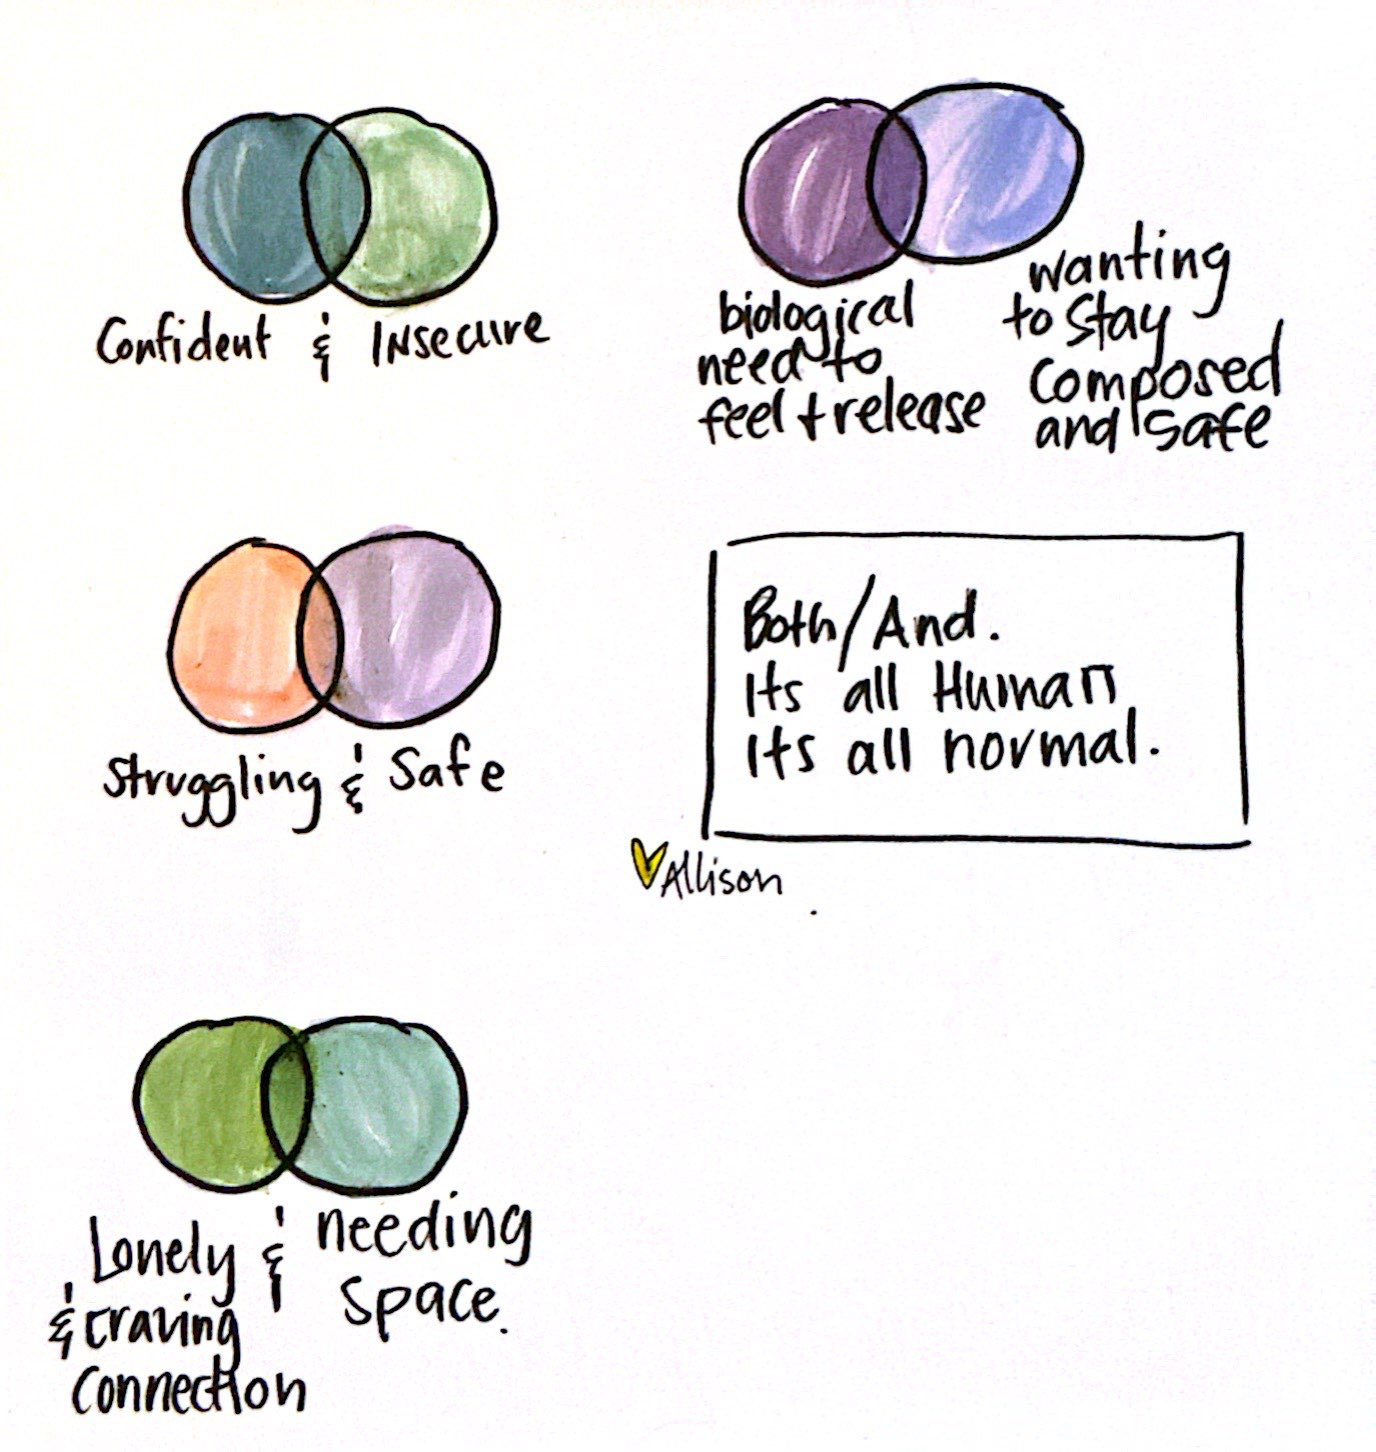 Confident & Insecure
biological
need to
feel + release
wanting
to stay
composed
and safe
Struggling & Safe
Both/And.
Its all Human
Its all normal.
Allison
Lonely & needing
& craving space.
connection